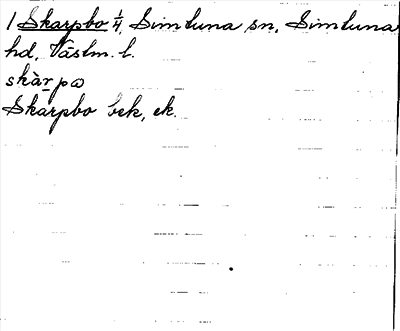 1 Skarpbo 1/4, Simtuna sn, Simtuna
hd, Västm. l.
skàr̲pɷ
Skarpbo bek, ek.